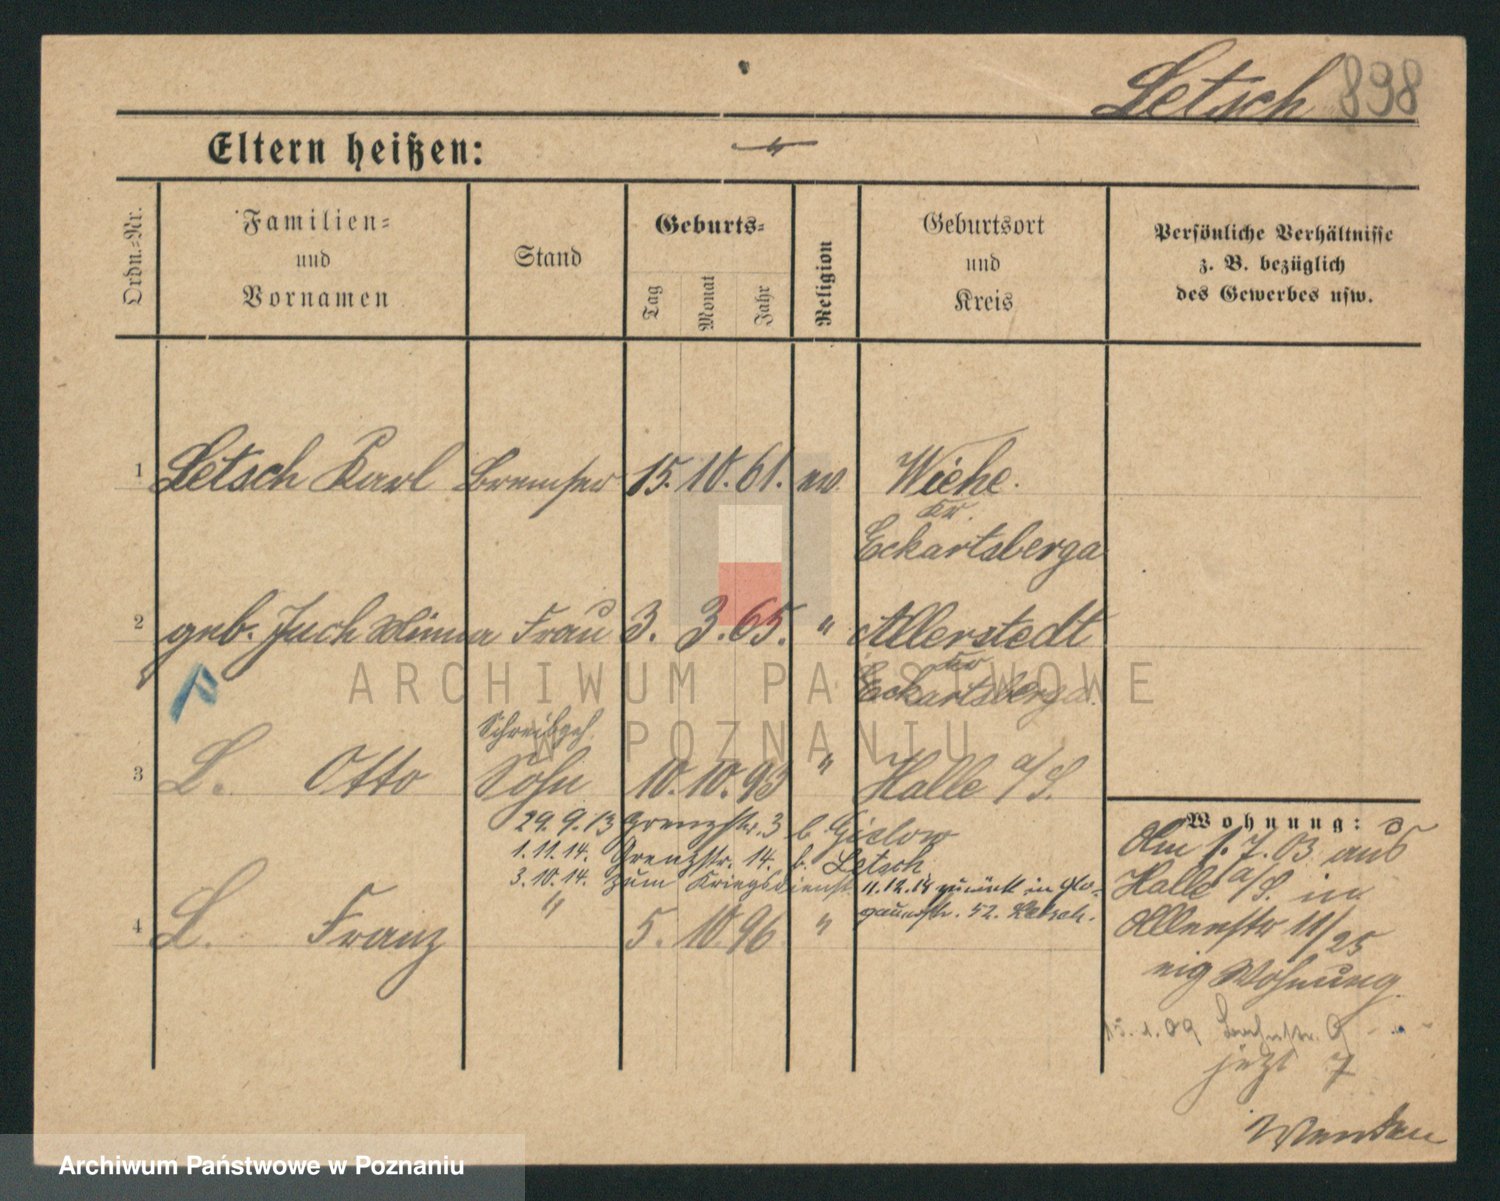 Letsch 898
Eltern heißen:
Ordn.=Nr.
Familien=
und
Vornamen
Stand
Geburts=
Tag
Monat
Jahr
Religion
Geburtsort
und
Kreis
Persönliche Verhältnisse
z. B. bezüglich
des Gewerbes usw.
1 Letsch Karl Bremser 15. 10. 61. ev. Wiehe.
Kr.
Eckartsberga
2 geb. Juch Minna Frau 3. 3. 65. " Allerstedt
Kr
Eckartsberga.
Schreibgeh.
3 L. Otto Sohn 10. 10. 93 " Halle a/S.
29. 9. 13 Grenzstr. 3 b.
1. 11. 14. Grenzstr. 14. b. Letsch
3. 10. 14. zum Kriegsdienst 11.12.18 zurück in Glo-
gauerstr. 52. Letsch.
4 L. Franz " 5. 10. 96 "
Wohnung:
Am 1. 7. 03 aus
Halle a/S. in
11/25
eig Wohnung
15. 1. 09
jetzt 7
Wenden
ARCHIWUM PAŃSTWOWE
W POZNANIU
Archiwum Państwowe w Poznaniu